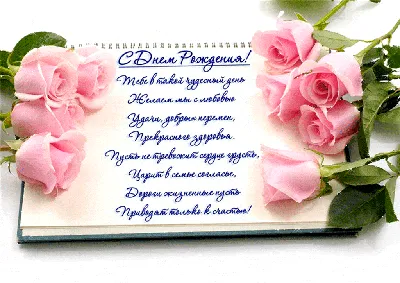 С Днем Рождения!
Тебе в такой чудесный день
Желаем мы с любовью
Удачи, добрых перемен,
Прекрасного здоровья.
Пусть не тревожит сердце грусть,
Царит в семье согласье,
Дороги жизненные пусть
Приводят только к счастью!